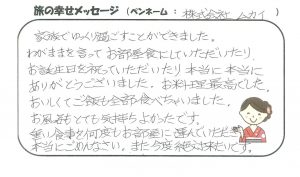 旅の幸せメッセージ（ペンネーム： 株式会社 ムカイ ）
家族でゆっくり過ごすことができました。
わがままを言ってお部屋食にしていただいたり
お誕生日を祝っていただいたり本当に本当に
ありがとうございました。お料理最高でした。
おいしくてご飯も全部食べちゃいました。
お風呂もとても気持ちよかったです。
重い食事を何度もお部屋に運んでいただき
本当にごめんなさい。また今度絶対来たいです。